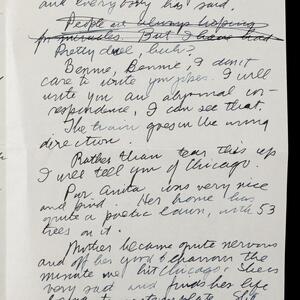 and everybody has said.
People are always hoping
for miracles. But I have had
Pretty dull, huh?
Bennie, Bennie, I don't
care to write you jibes. I will
write you an abysmal cor-
respondence, I can see that.
The train goes in the wrong
direction.
Rather than tear this up
I will tell you of Chicago.
Poor Anita was very nice
and kind. Her home has
quite a poetic lawn, with 53
trees on it.
Mother became quite nervous
and off her good behaviour the
minute we hit Chicago. She is
very sad and finds her life